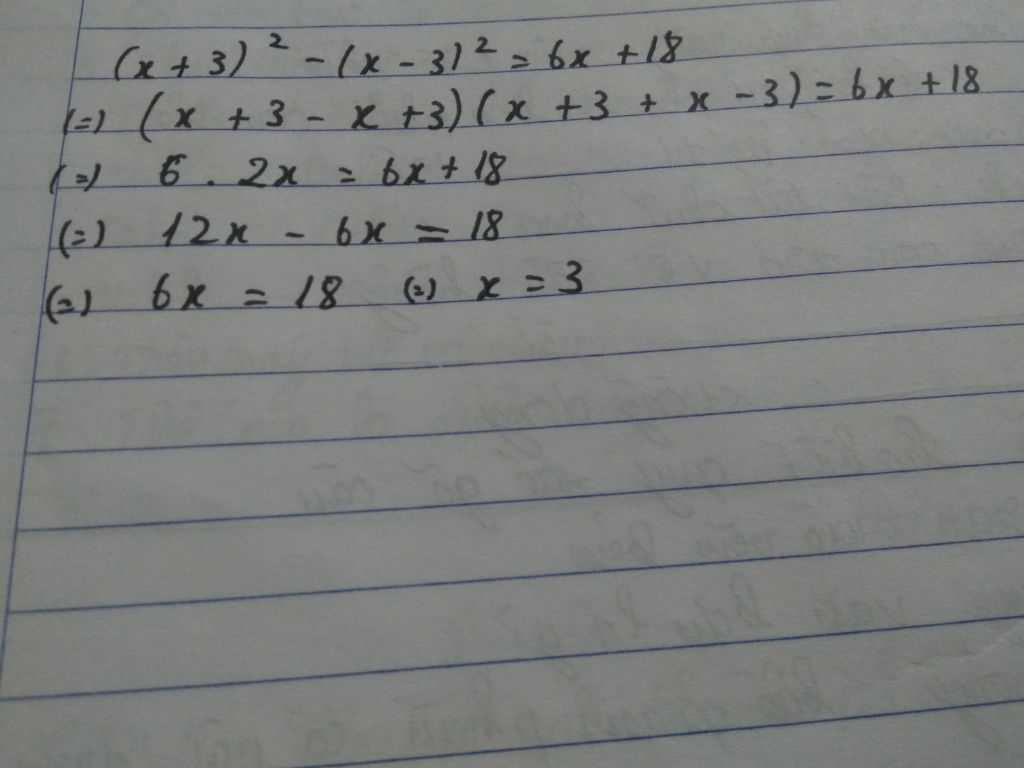 (x + 3)² - (x - 3)² = 6x + 18
(=) (x + 3 - x + 3)(x + 3 + x - 3) = 6x + 18
(=) 6 . 2x = 6x + 18
(=) 12x - 6x = 18
(=) 6x = 18 (=) x = 3